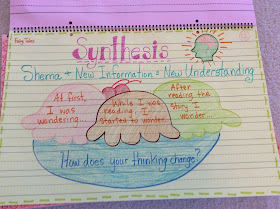 Fairy Tales
Synthesis
Shema + New Information = New Understanding
At first,
I was
wondering...
While I was
reading, I
started to wonder...
After
reading the
story I
wonder...
How does your thinking change?